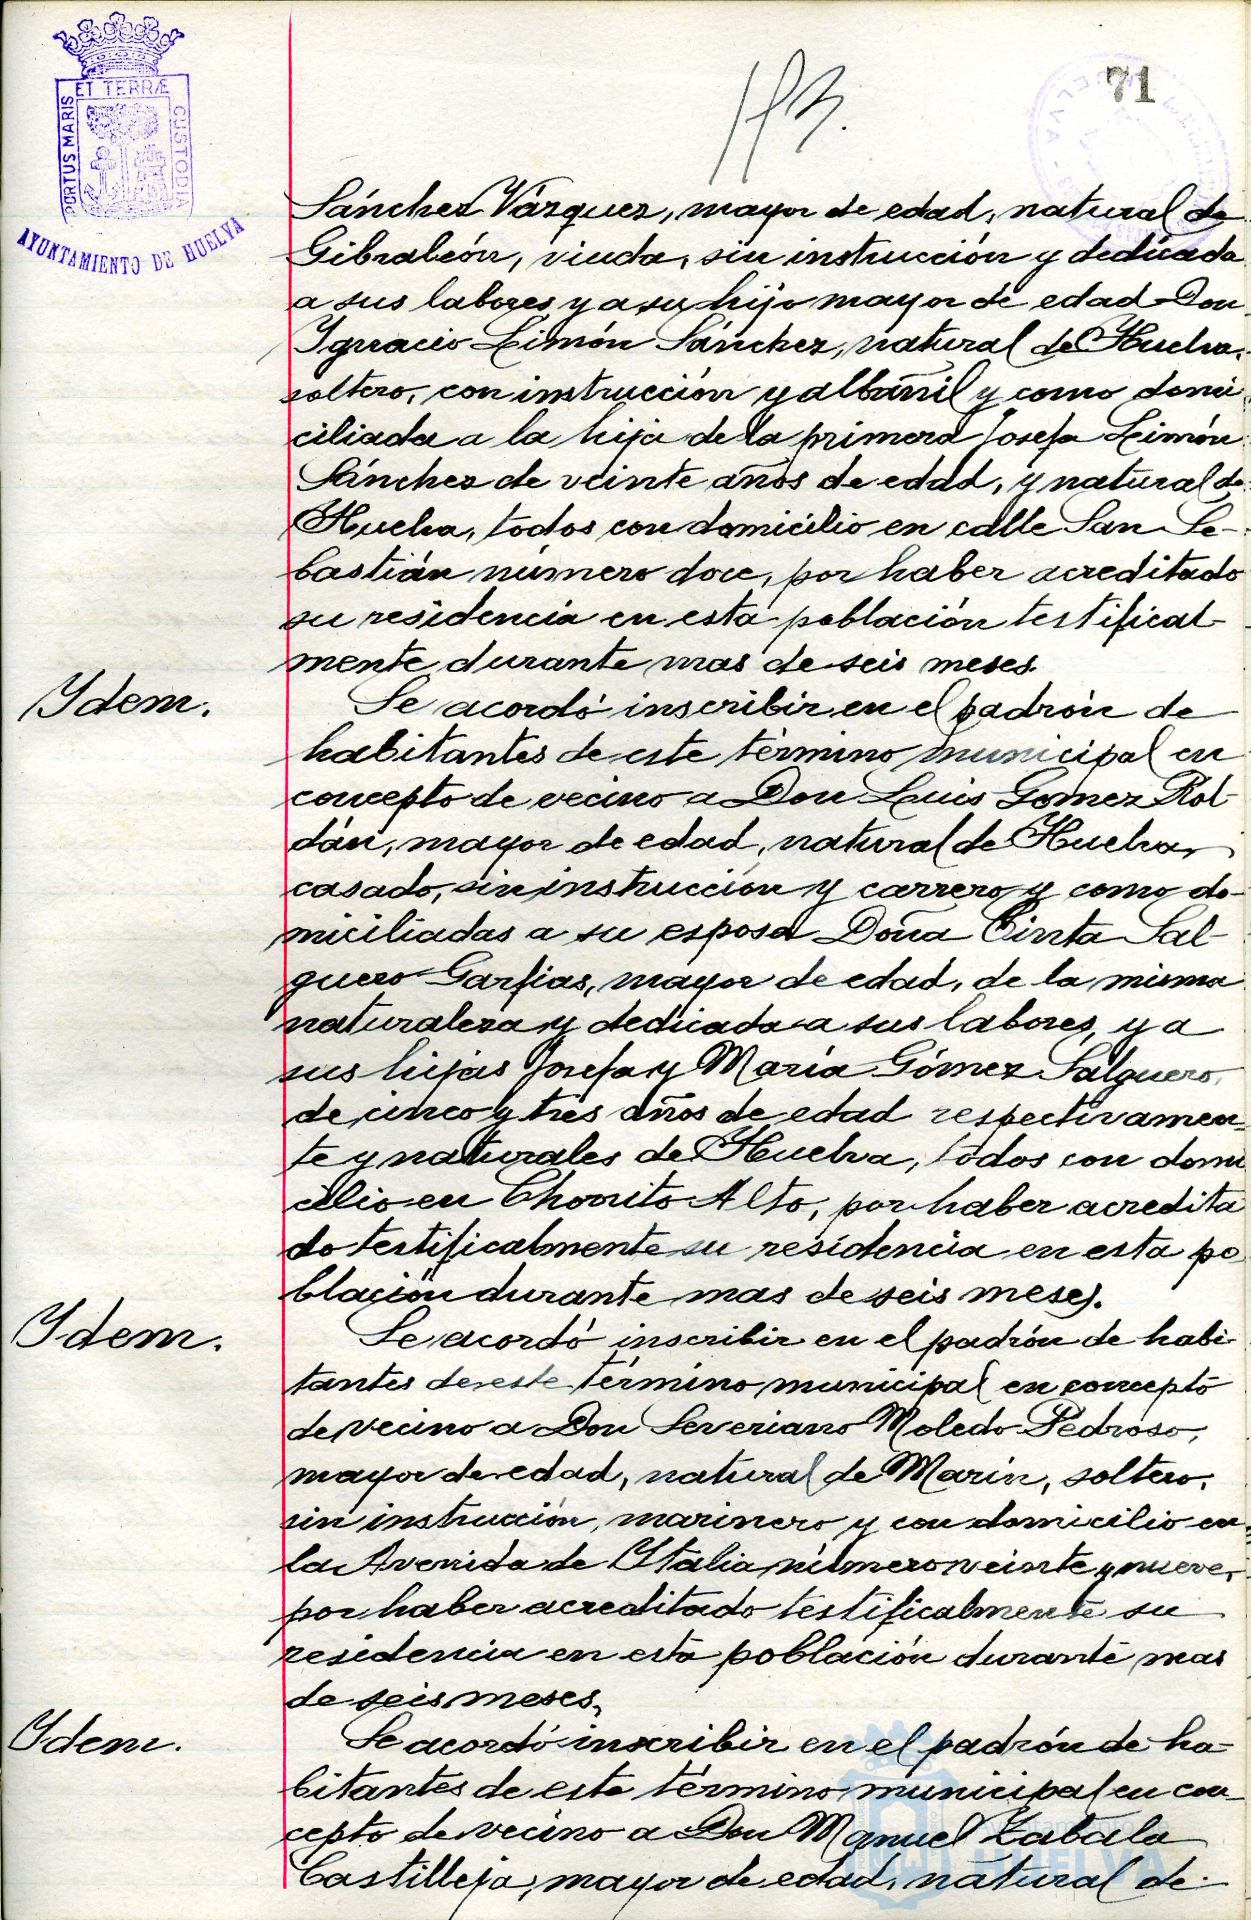 ET TERRÆ
PORTUS MARIS
CUSTODIA
AYUNTAMIENTO DE HUELVA
71
Sánchez Vázquez, mayor de edad, natural de
Gibraleón, viuda, sin instrucción y dedicada
a sus labores y a su hijo mayor de edad Don
Ygnacio Limón Sánchez, natural de Huelva,
soltero, con instrucción y albañil y como domi
ciliada a la hija de la primera Josefa Limón
Sánchez de veinte años de edad, y natural de
Huelva, todos con domicilio en calle San Se-
bastián número doce, por haber acreditado
su residencia en esta población testifical-
mente durante mas de seis meses.
Ydem.
Se acordó inscribir en el padrón de
habitantes de este término municipal en
concepto de vecino a Don Luis Gomez Rol-
dán, mayor de edad, natural de Huelva,
casado, sin instrucción y carrero y como do-
miciliadas a su esposa Doña Cinta Sal-
guero Garfias, mayor de edad, de la misma
naturaleza y dedicada a sus labores, y a
sus hijas Josefa y María Gómez Salguero,
de cinco y tres años de edad respectivamen-
te y naturales de Huelva, todos con domi
cilio en Chorrito Alto, por haber acredita
do testificalmente su residencia en esta po
blación durante mas de seis meses.
Ydem.
Se acordó inscribir en el padrón de habi-
tantes de este término municipal en concepto
de vecino a Don Severiano Moledo Pedroso,
mayor de edad, natural de Marín, soltero,
sin instrucción, marinero y con domicilio en
la Avenida de Ytalia número veinte y nueve,
por haber acreditado testificalmente su
residencia en esta población durante mas
de seis meses.
Ydem.
Se acordó inscribir en el padrón de ha-
bitantes de este término municipal en con-
cepto de vecino a Don Manuel Zabala
Castilleja, mayor de edad, natural de
Ayuntamiento de
HUELVA